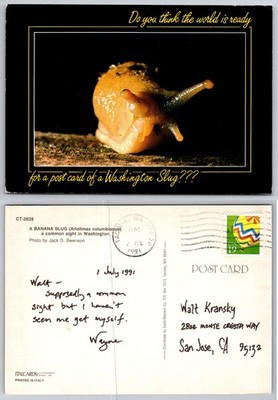 Do you think the world is ready
for a post card of a Washington Slug???
CT-2628
A BANANA SLUG (Ariolimax columbianus)
a common sight in Washington
Photo by Jack D. Swenson
1 July 1991
Walt —
Supposedly a common
sight but I haven't
seen one yet myself.
Wayne
ITALCARDS
PRINTED IN ITALY
1991
19
POST CARD
Walt Kransky
2802 MONTE CRESTA WAY
San Jose, CA 95132